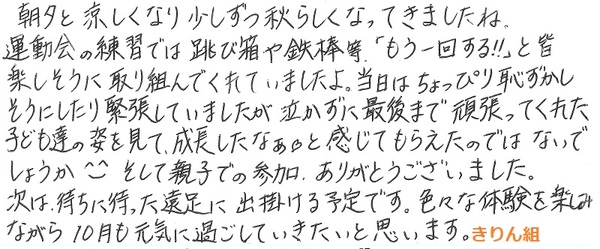 朝夕と涼しくなり少しずつ秋らしくなってきましたね。
運動会の練習では跳び箱や鉄棒等、「もう一回する!!」と皆
楽しそうに取り組んでくれていましたよ。当日はちょっぴり恥ずかし
そうにしたり緊張していましたが泣かずに最後まで頑張ってくれた
子ども達の姿を見て、成長したなぁと感じてもらえたのではないで
しょうか^^ そして親子での参加、ありがとうございました。
次は、待ちに待った遠足に出掛ける予定です。色々な体験を楽しみ
ながら10月も元気に過ごしていきたいと思います。きりん組